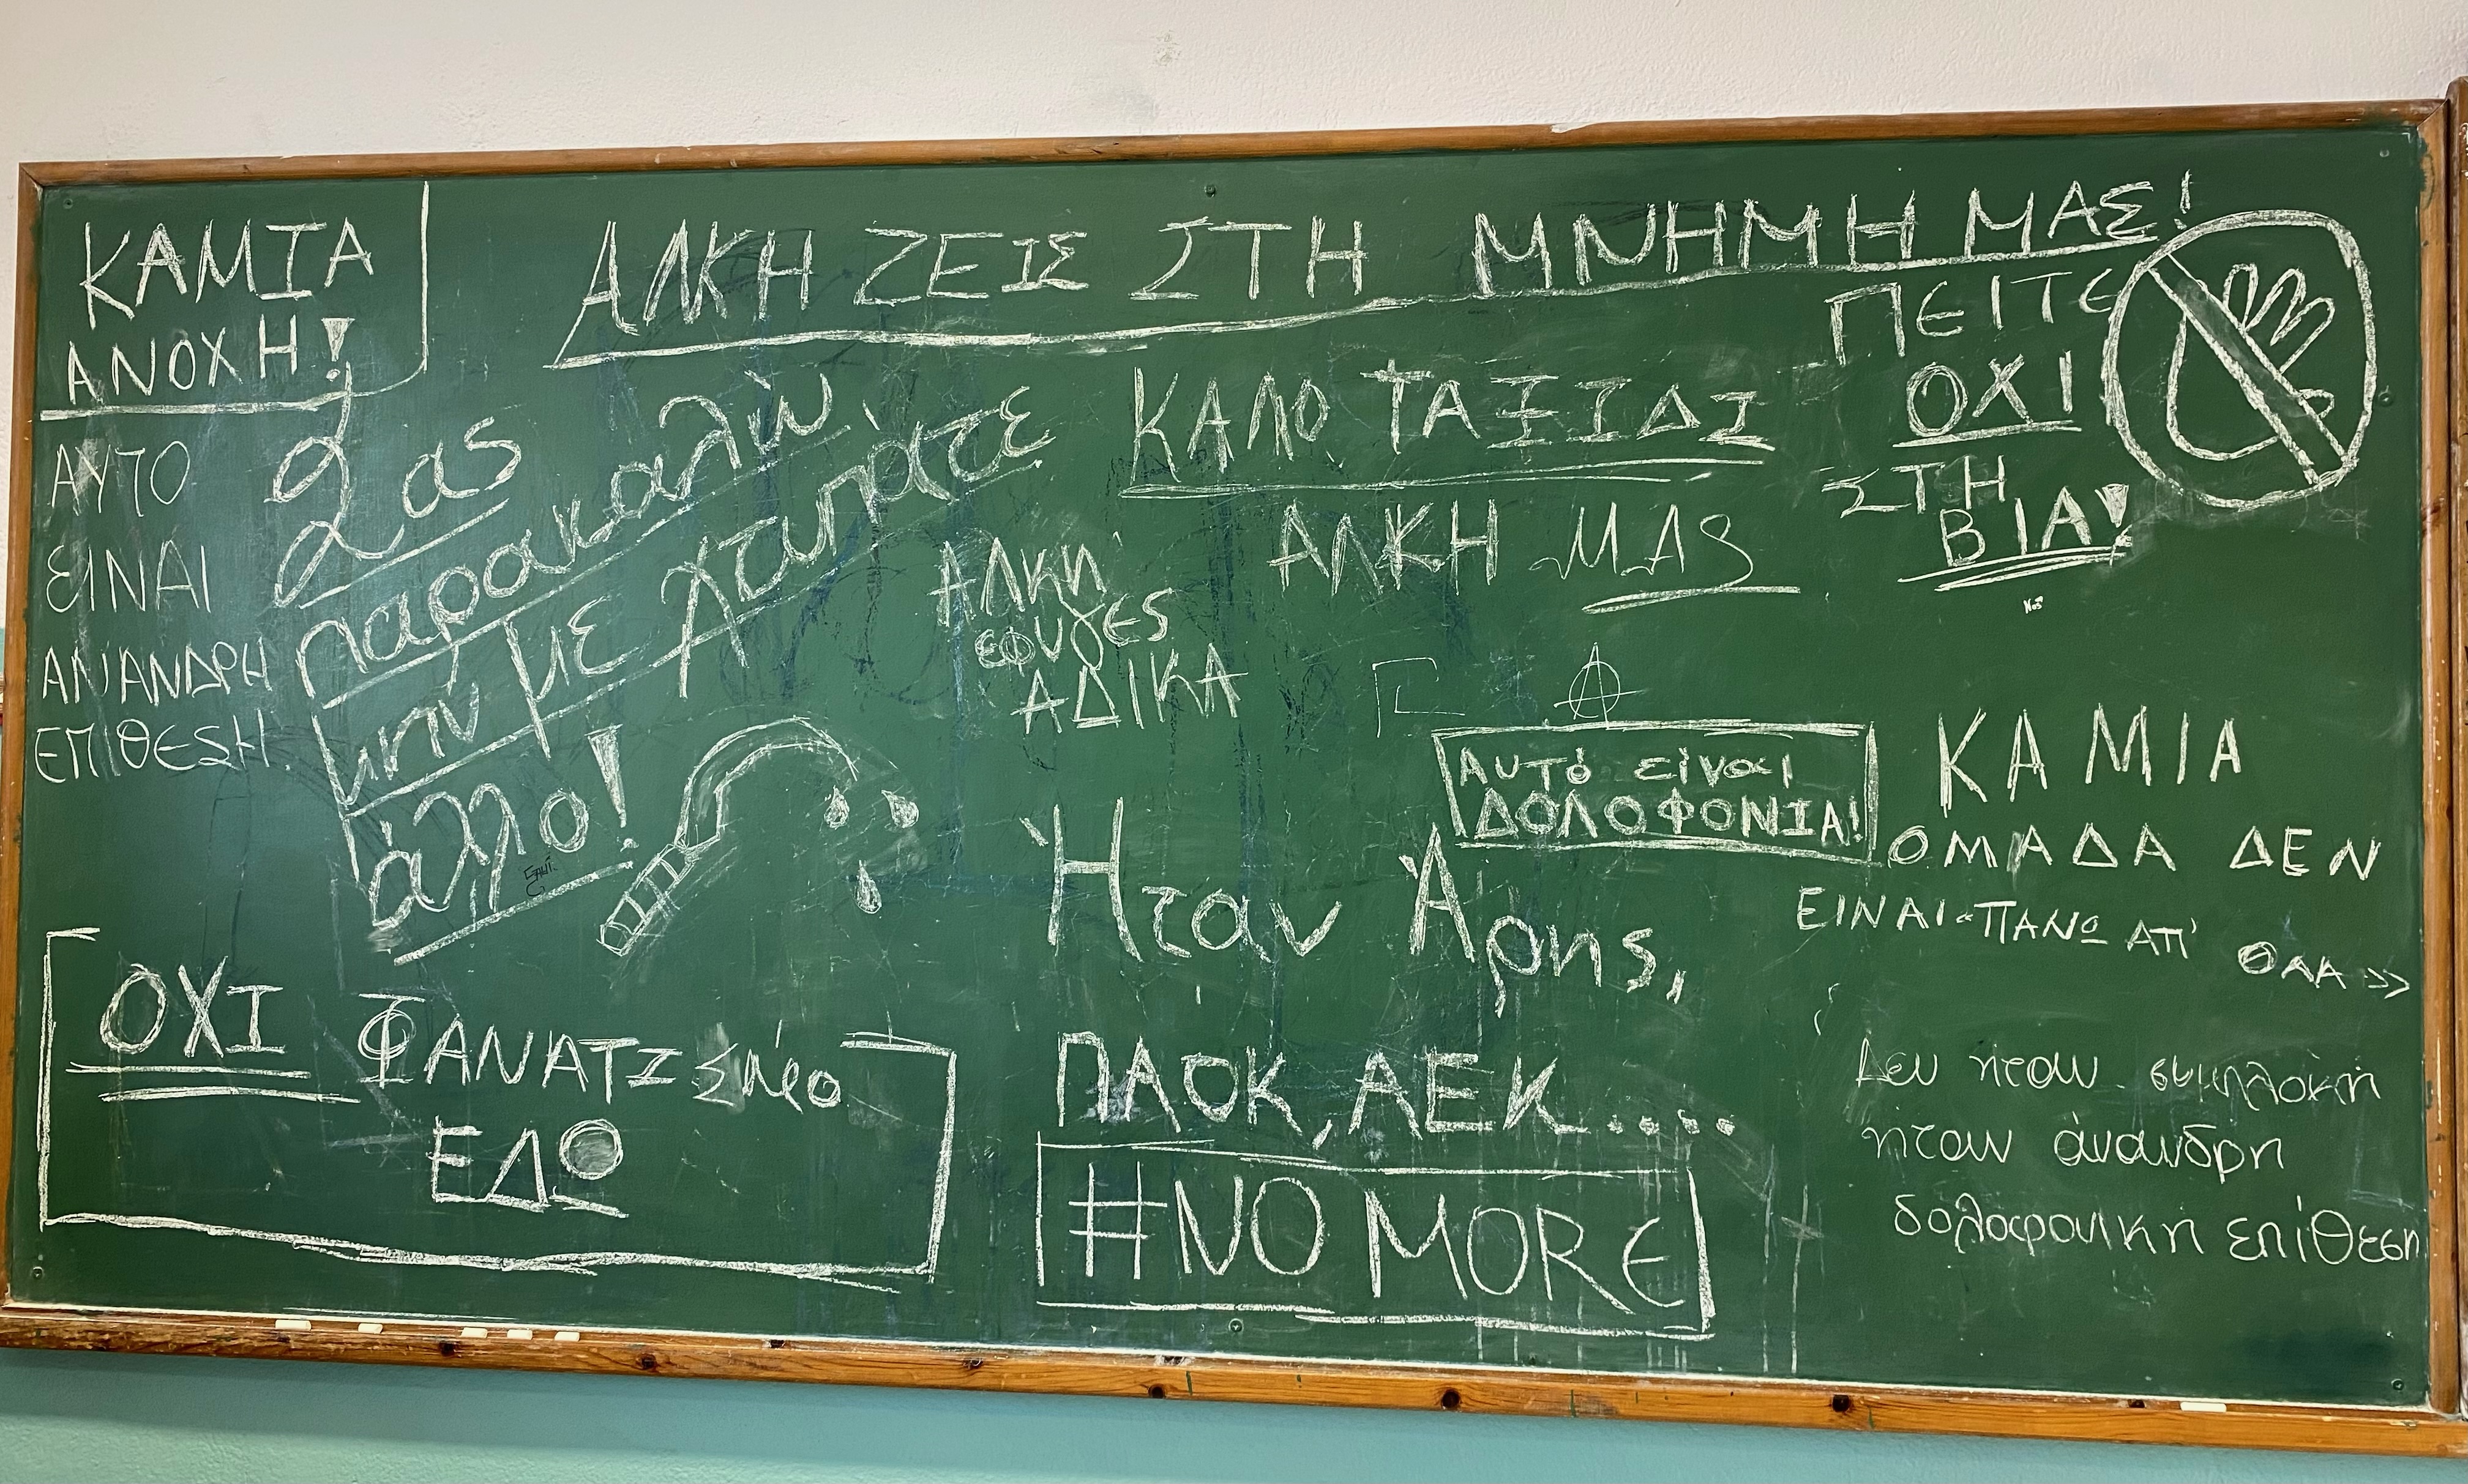 ΚΑΜΙΑ
ΑΝΟΧΗ!
ΑΛΚΗ ΖΕΙΣ ΣΤΗ ΜΝΗΜΗ ΜΑΣ!
ΠΕΙΤΕ
ΟΧΙ
ΣΤΗ
ΒΙΑ!
ΑΥΤΟ
ΕΙΝΑΙ
ΑΝΑΝΔΡΗ
ΕΠΙΘΕΣΗ.
Σας
παρακαλώ
μην με χτυπάτε
άλλο!
ΚΑΛΟ ΤΑΞΙΔΙ
ΑΛΚΗ ΜΑΣ
Αλκη
εφυγες
ΑΔΙΚΑ
Αυτό είναι
ΔΟΛΟΦΟΝΙΑ!
Ήταν Άρης,
ΠΑΟΚ, ΑΕΚ.....
#NO MORE
ΚΑΜΙΑ
ΟΜΑΔΑ ΔΕΝ
ΕΙΝΑΙ "ΠΑΝΩ ΑΠ'
Δεν ηταν συμπλοκή
ήταν άνανδρη
δολοφονική επίθεση
ΟΧΙ ΦΑΝΑΤΙΣΜΟ
ΕΔΩ